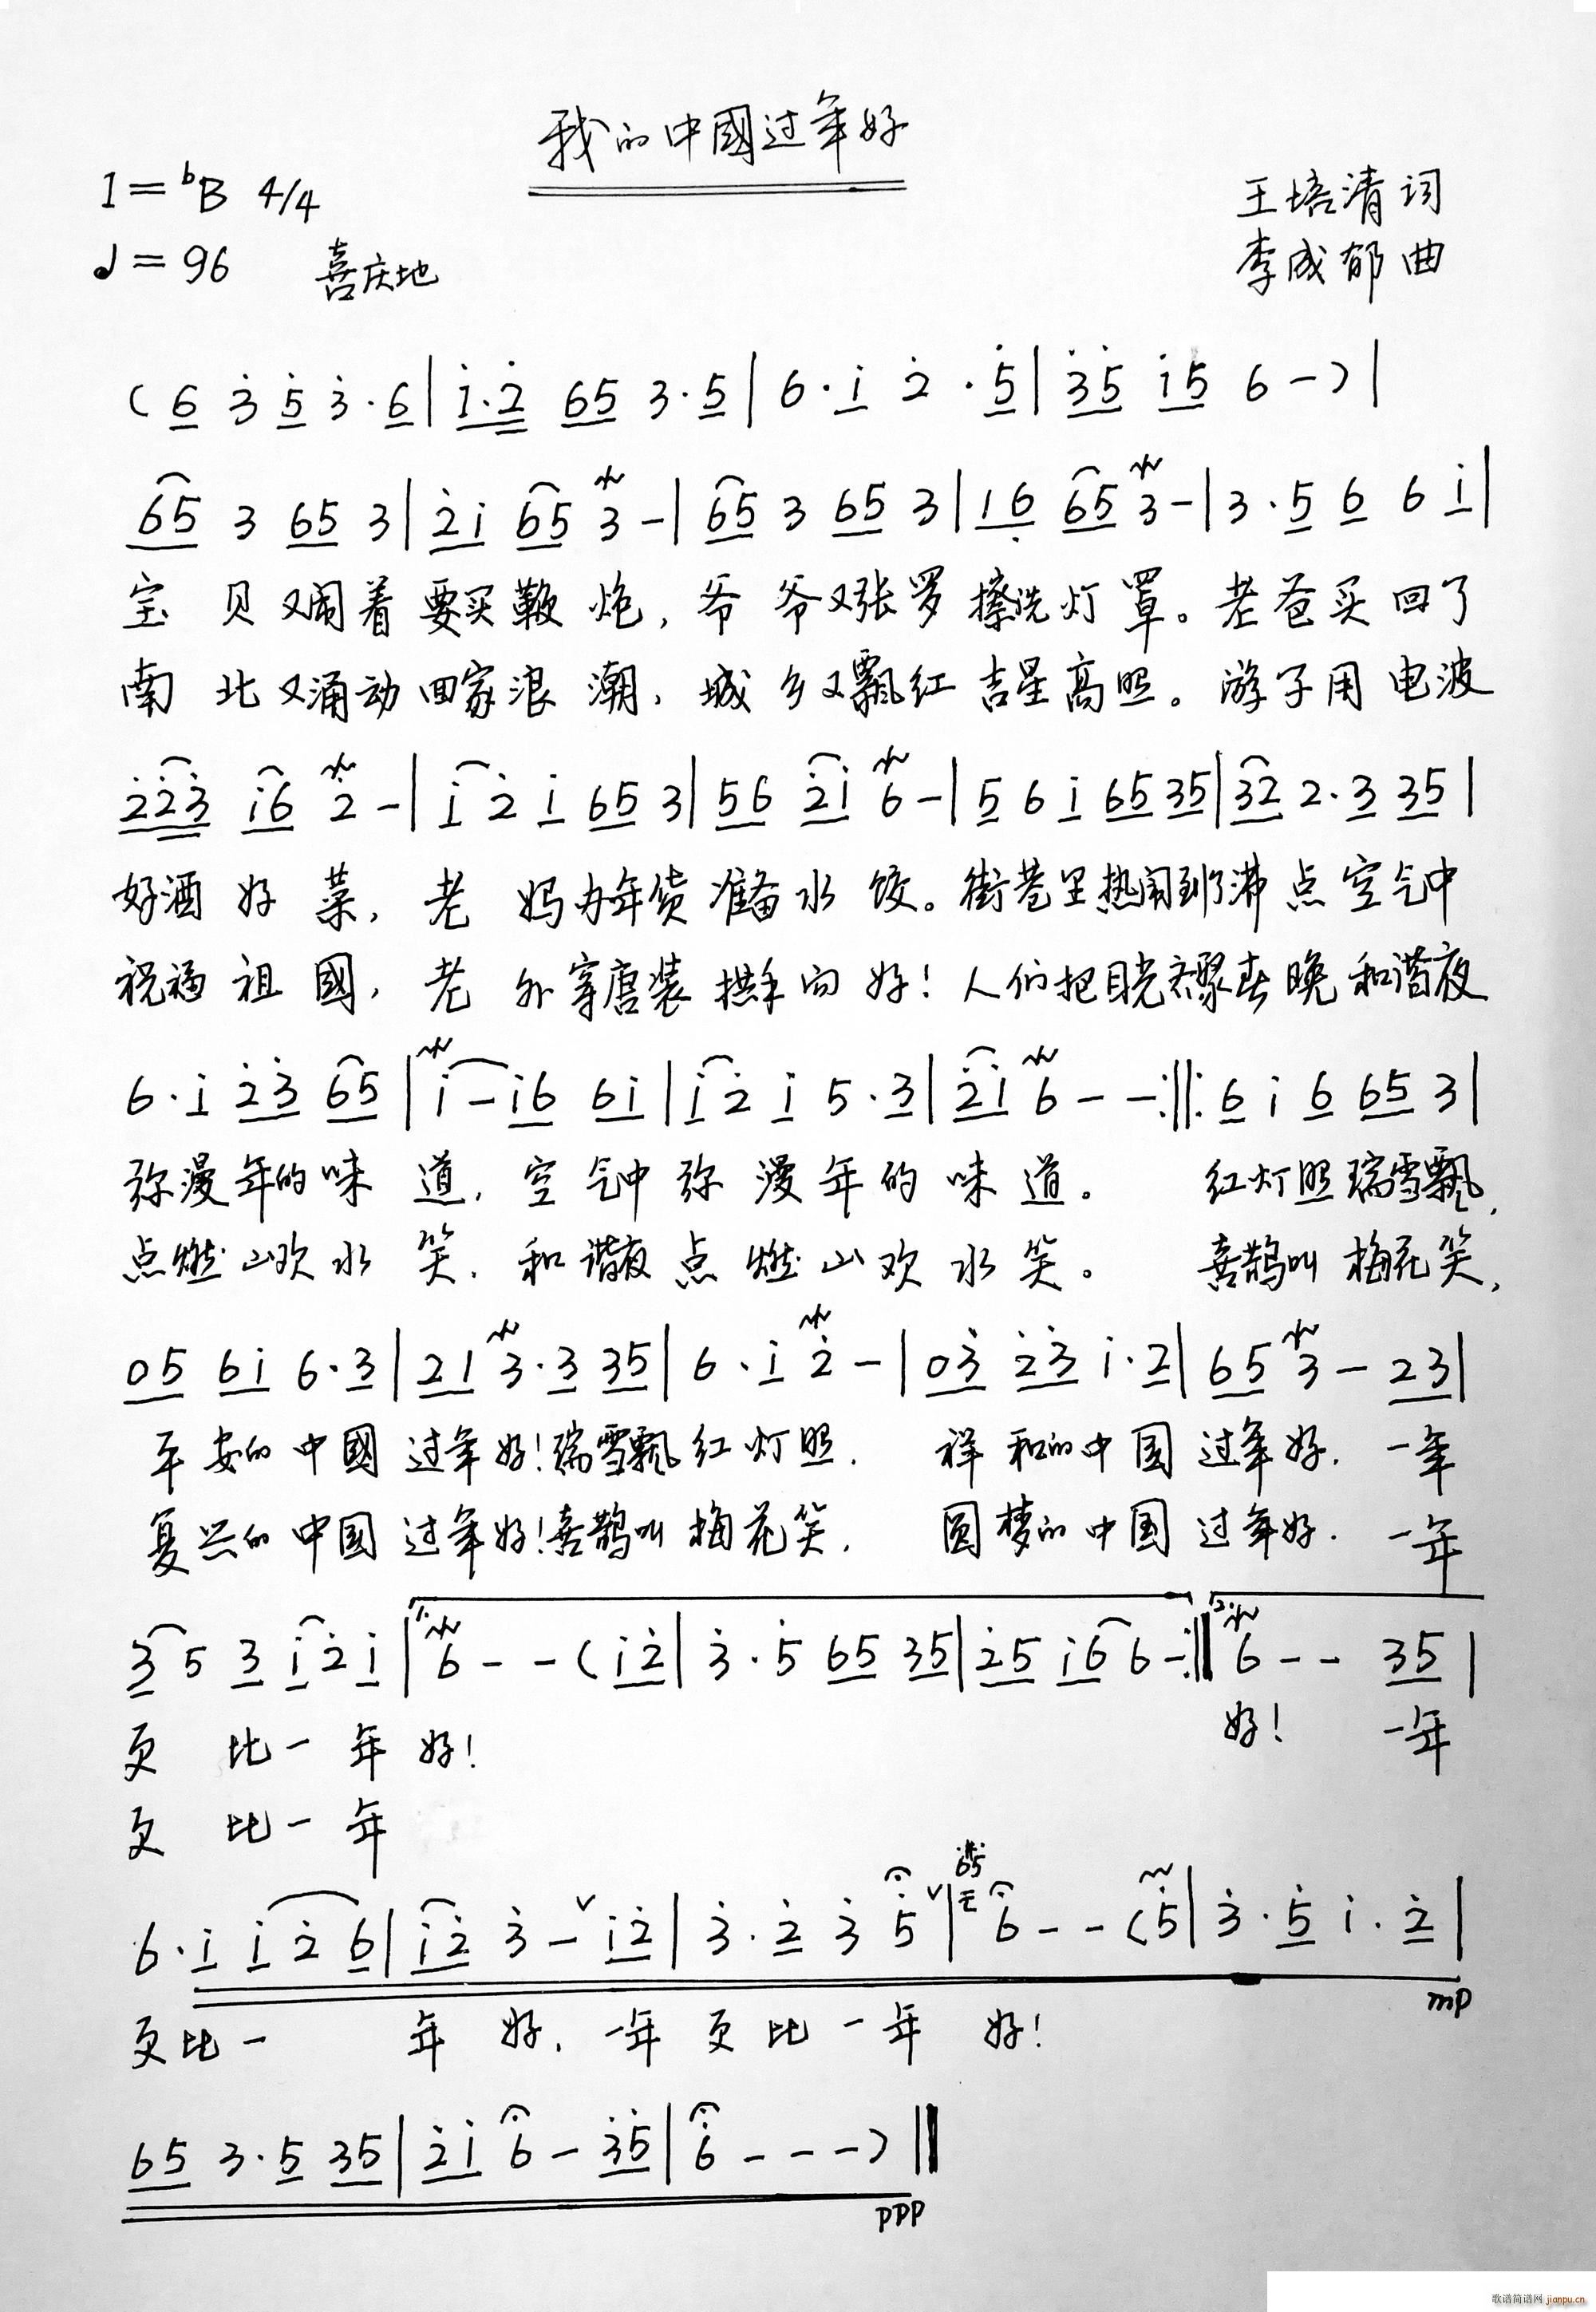 我的中國过年好
1=ᵇB 4/4
王培清 词
♩=96 喜庆地
李成郁 曲
(6 3̇ 5̇ 3̇·6|1̇·2̇ 65 3·5|6·1̇ 2̇·5̇|3̇5̇ 1̇5 6-)|
65 3 65 3|2̇1̇ 65 3-|65 3 65 3|16̣ 65 3-|3·5 6 6 1̇|
宝 贝又闹着 要买鞭 炮,爷 爷又张罗 擦洗灯 罩。老爸买 回了
南 北又涌动 回家浪 潮,城 乡又飘红 吉星高照。游子用 电波
2̇2̇3̇ 1̇6 2̇-|1̇ 2̇ 1̇ 65 3|56 2̇1̇ 6-|5 6 1̇ 65 35|32 2·3 35|
好酒 好 菜,老 妈办年货 准备水 饺。街巷里热闹到了沸 点 空气中
祝福 祖 國,老 外穿唐装 拱手向 好!人们把目光齐聚春 晚 和谐夜
6·1̇ 2̇3̇ 65|1̇-1̇6 61̇|1̇2̇ 1̇ 5·3|2̇1̇ 6--:||:6 1̇ 6 65 3|
弥漫年的味 道,空 气中 弥 漫 年 的 味 道。 红灯照瑞雪飘,
点燃山欢水 笑,和 谐夜 点 燃 山 欢 水 笑。 喜鹊叫 梅花笑,
05 61̇ 6·3|21 3·3 35|6·1̇ 2̇-|03̇ 2̇3̇ 1̇·2|65 3-23|
平 安的 中國 过年好!瑞雪飘红灯照. 祥 和的中国 过年好. 一年
复兴的 中国 过年好!喜鹊叫 梅花笑. 圆梦的 中国 过年好. 一年
3 5 3 1̇ 2̇ 1̇|1.6--(1̇2̇|3̇·5 65 35|2̇5 1̇6 6-:||2.6-- 35|
更 比一 年 好! 好! 一年
更 比一 年
6·1̇ 1̇ 2̇ 6|1̇2̇ 3̇-ᵛ1̇2̇|3̇·2̇ 3̇ 5̇ᵛ|65 6--(5̇|3̇·5̇ 1̇·2̇|
mp
更比一 年 好. 一年 更 比 一 年 好!
65 3·5 35|2̇1̇ 6-3̇5̇|6̇---)||
ppp
歌谱简谱网 jianpu.cn